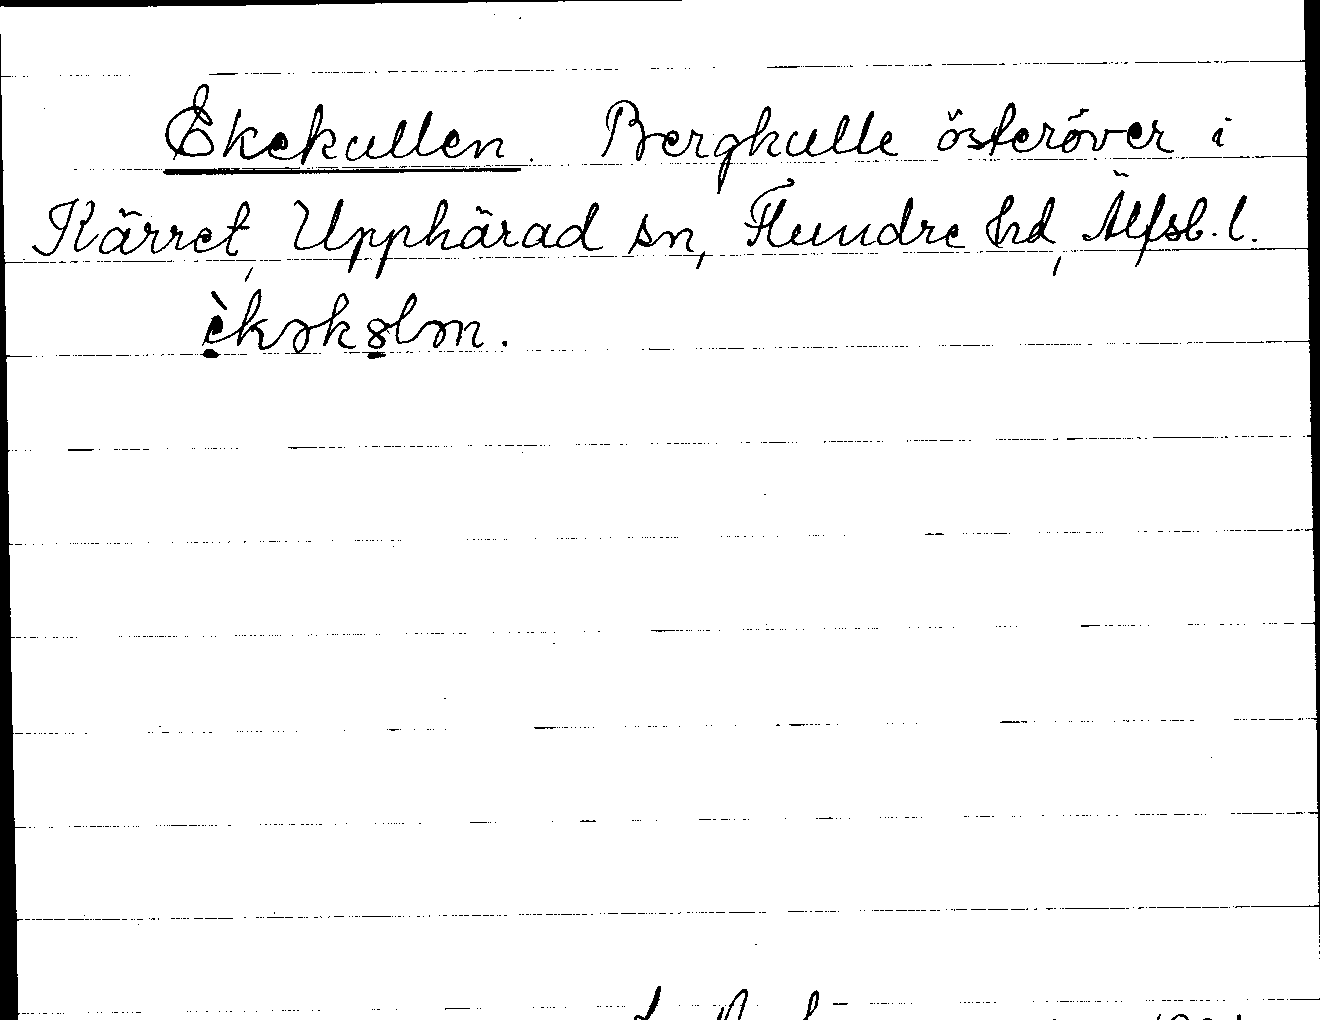 Ekekullen. Bergkulle österöver i
Kärret, Upphärad sn, Flundre hd, Älfsb. l.
èkəkɵlən.